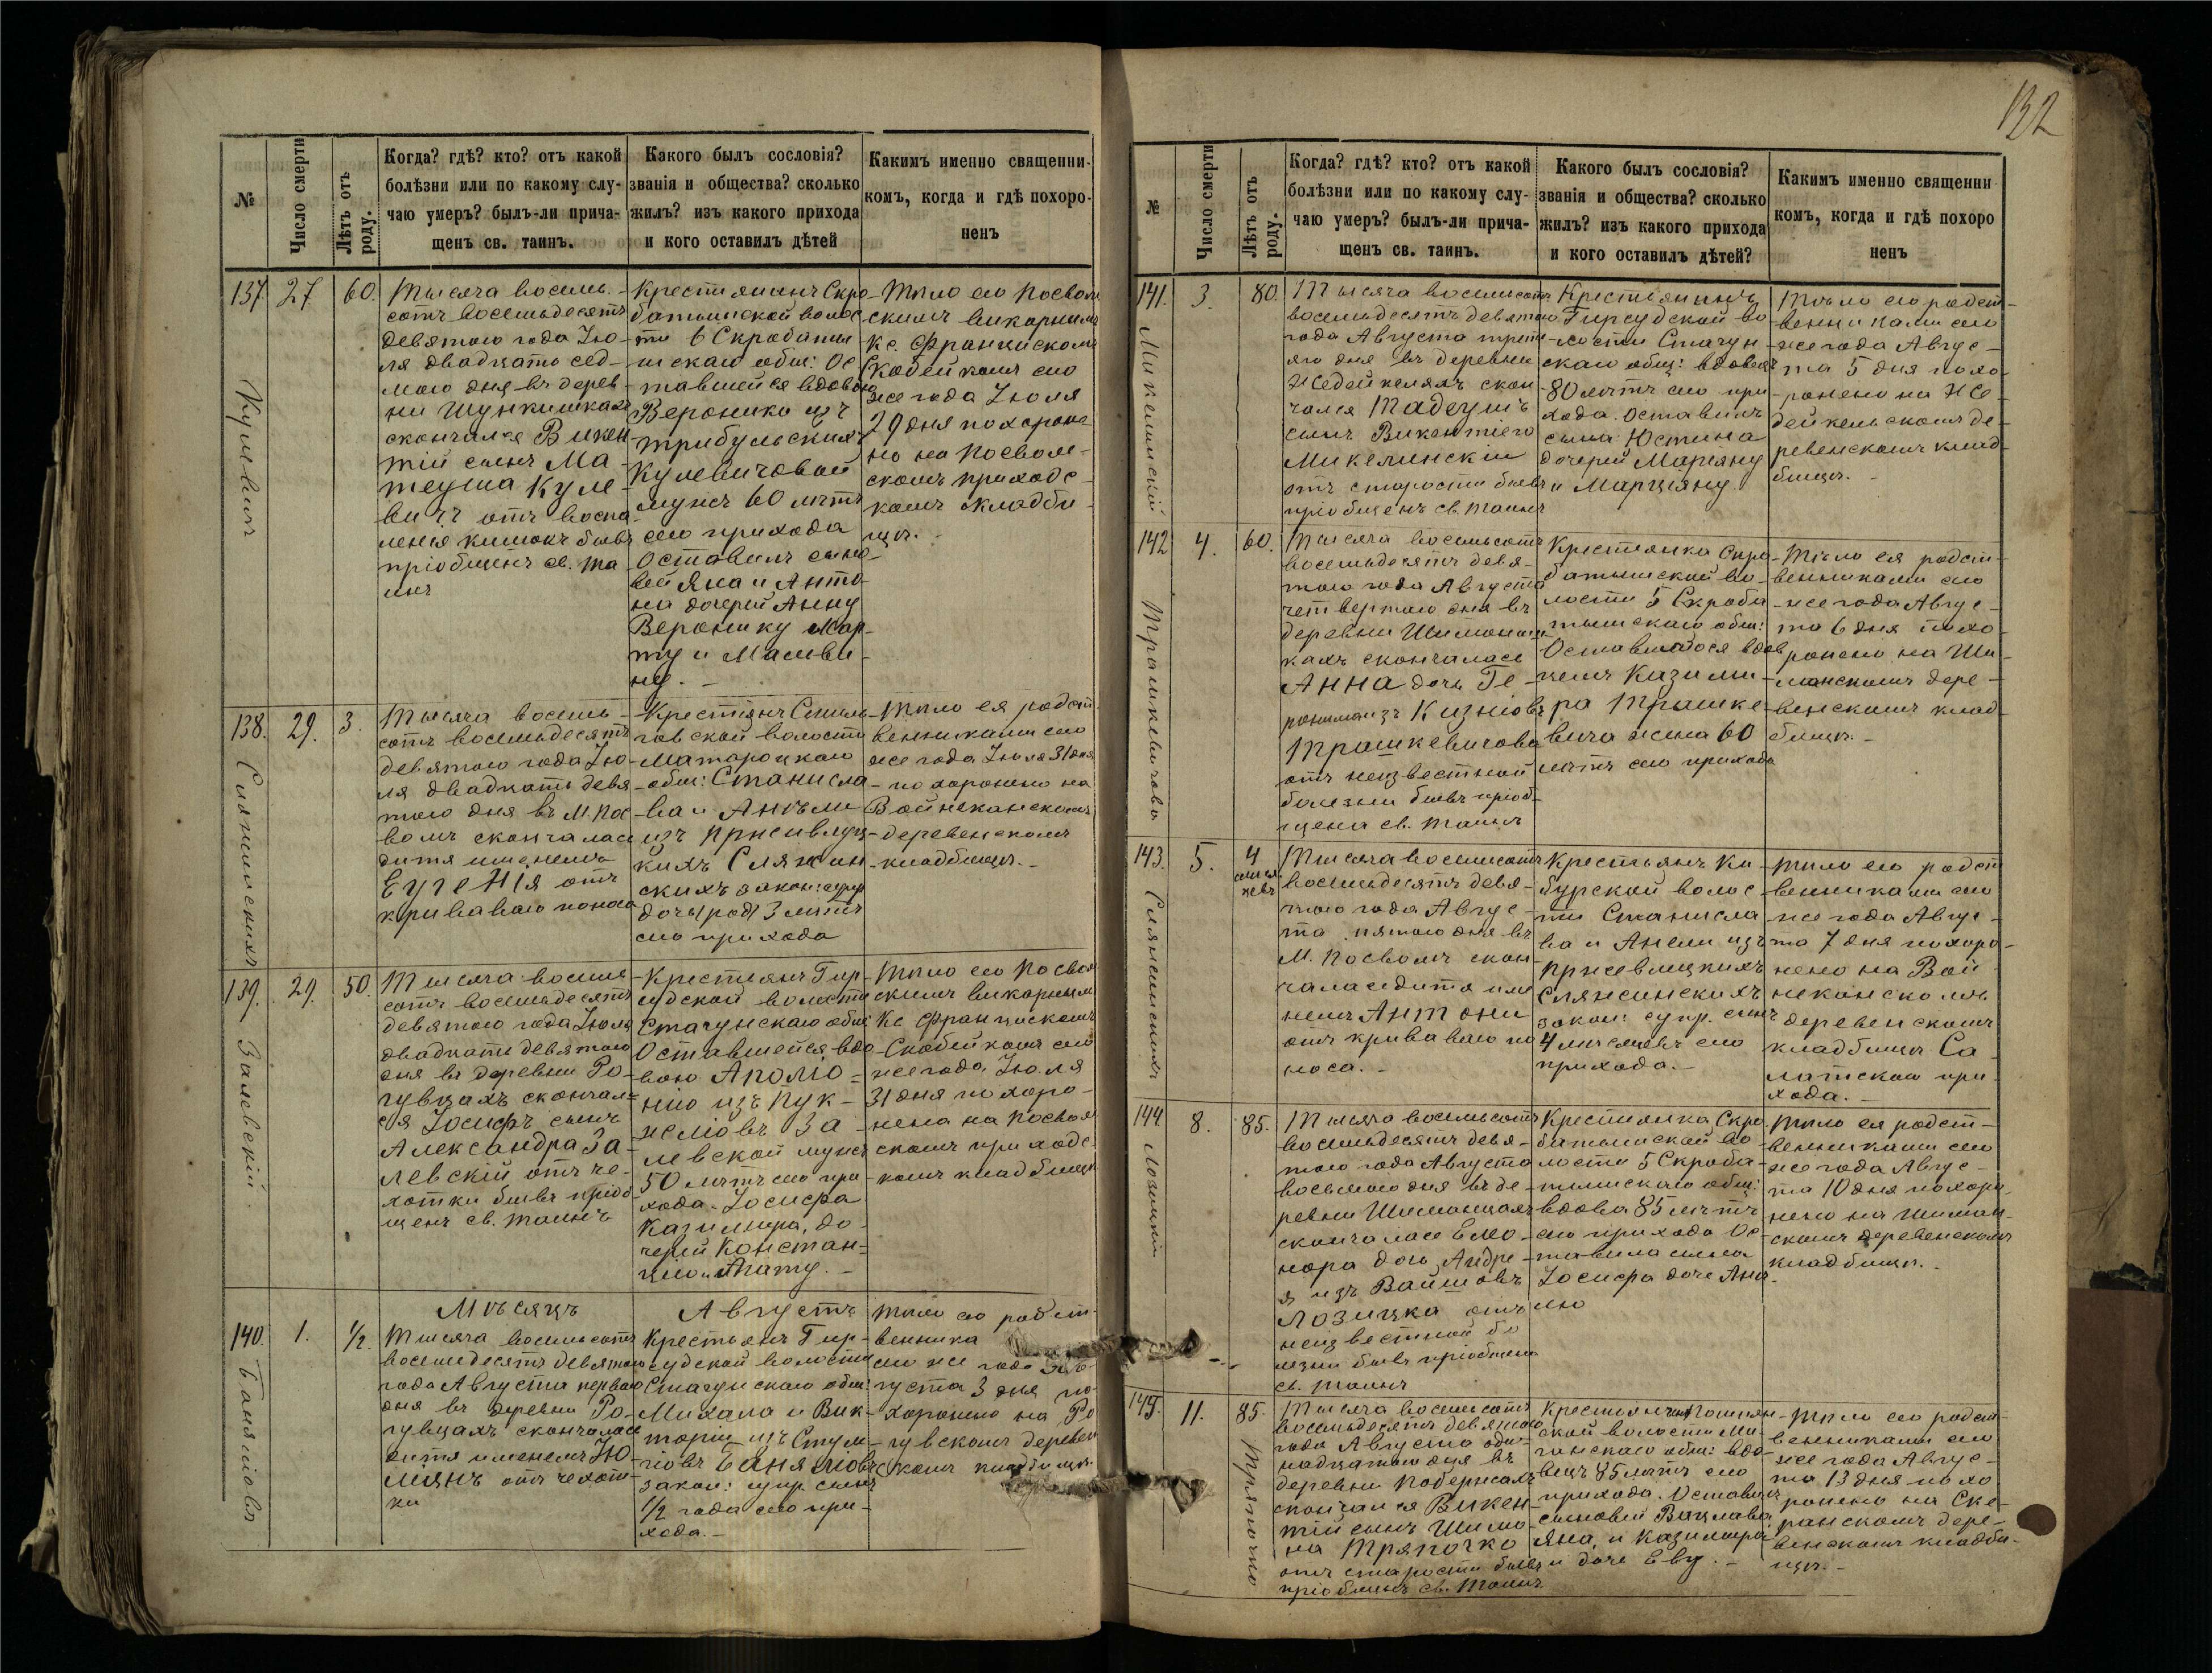 132
№
Число смерти
Лѣтъ отъ роду.
Когда? гдѣ? кто? отъ какой
болѣзни или по какому слу-
чаю умеръ? былъ-ли прича-
щенъ св. таинъ.
Какого былъ сословія?
званія и общества? сколько
жилъ? изъ какого прихода
и кого оставилъ дѣтей
Какимъ именно священни-
комъ, когда и гдѣ похоро-
ненъ
137.
Кулевичъ
27
60.
Тысяча восемь-
сотъ восемьдесятъ
девятого года Ію-
ля двадцать сед-
мого дня въ дерев-
ни Шункишкахъ
скончался Викен-
тій сынъ Ма-
теуша Куле-
вичъ отъ воспа-
ленія кишокъ бывъ
пріобщенъ св. Та-
инъ
Крестьянинъ Скро-
батышской волос-
ти 6 Скробаты-
шскаго общ: Ос-
тавшейся вдовою
Вероники изъ
Трибульскихъ
Кулевичовой
мужъ 60 лѣтъ
сего прихода
Оставилъ сыно-
вей Яна и Анто-
на дочерей Анну
Веронику Мар-
ту и Мальви-
ну. -
Тѣло его Посволь
скимъ викарнымъ
Кс. Францискомъ
Скобейкомъ сего
же года Іюля
29 дня похороне
но на Посволь-
скомъ приходс-
комъ кладби-
щѣ. -
138.
Слянжинскихъ
29.
3
Тысяча восемь-
сотъ восемьдесятъ
девятого года Ію-
ля двадцать девя-
того дня въ М. Пос-
воль скончалась
дитя именемъ
Еугенія отъ
криваваго поноса
Крестьянъ Смиль-
говской волости
общ: Станисла-
ва и Анели
изъ Присевлуц-
кихъ Слянжин-
скихъ закон: супр
дочь род 3 лѣтъ
сего прихода
Тѣло ея родст-
венниками сего
же года Іюля 31 дня
похоронено на
Войнеканскомъ
деревенскомъ
кладбищѣ. -
139.
Залевскій
29.
50.
Тысяча восемь
сотъ восемьдесятъ
девятого года Іюля
двадцать девятого
дня въ деревни Ро-
гувцахъ скончал-
ся Іосифъ сынъ
Александра За-
левскій отъ че-
хотки бывъ пріоб-
щенъ св. Таинъ
Крестьянъ Гир-
судской волости
Стачунскаго общ:
Оставшейся вдо-
вою Аполіо-
ніи изъ Пук-
желіовъ За-
левской мужъ
50 лѣтъ сего при-
хода. Іосифа
Казимира, до-
черей Констан-
цію и Агату. -
Тѣло его Посволь
скимъ викарным
Кс Францискомъ
Скобейкомъ сего
же года Іюля
31 дня похоро-
нена на Посволь
скомъ приходс-
комъ кладбищѣ
Мѣсяцъ Августъ
140.
Банялiовъ
1.
1/2.
Тысяча восемьсотъ
восемьдесятъ девятого
года Августа первого
дня въ деревни Ро-
гувцахъ скончалось
дитя именемъ Ю-
ліянъ отъ чехот-
ки
Крестьянъ Гир-
судской волости
Стачунскаго общ:
Михала и Вик-
торіи изъ
Банялiовъ
закон: супр. сынъ
1/2 года сего при-
хода. -
Тѣло его родст-
венника
сего же года Ав-
густа 3 дня по-
хоронено на Ро
гувскомъ деревен
скомъ кладбищѣ.
№
Число смерти
Лѣтъ отъ роду.
Когда? гдѣ? кто? отъ какой
болѣзни или по какому слу-
чаю умеръ? былъ-ли прича-
щенъ св. таинъ.
Какого былъ сословія?
званія и общества? сколько
жилъ? изъ какого прихода
и кого оставилъ дѣтей?
Какимъ именно священни
комъ, когда и гдѣ похоро
ненъ
141.
Микелинскій
3.
80.
Тысяча восемьсотъ
восемьдесятъ девятого
года Августа треть-
яго дня въ деревни
Жедейкеляхъ скон-
чался Тадеушъ
сынъ Викентіего
Микелинскій
отъ старости бывъ
пріобщенъ св. Таинъ
Крестьянинъ
Гирсудской во-
лости Стачун-
скаго общ: вдовецъ
80 лѣтъ сего при-
хода. Оставилъ
сына Юстина
дочерей Маріяну
и Марціяну.
Тѣло его родст-
венниками сего
же года Авгус-
та 5 дня похо-
ронено на Же-
дейкельскомъ де-
ревенскомъ клад-
бищѣ. -
142
Трашкевичова
4.
60.
Тысяча восемьсотъ
восемьдесятъ девя-
того года Августа
четвертого дня въ
деревни
скончалась
Анна дочь Ге-
ронима изъ Кизніовъ
Трашкевичова
отъ неизвестной
болезни бывъ пріоб-
щена св. Таинъ
Крестьянка Скро-
батышской во-
лости 5 Скроба-
тышскаго общ:
Оставшагося вдов
цемъ Казими-
ра Трашке-
вича жена 60
лѣтъ сего прихода
Тѣло ея родст-
венниками сего
же года Авгус-
та 6 дня похо-
ронено на Ши-
манскомъ дере-
венскомъ клад-
бищѣ. -
143.
Слянжинскихъ
5.
4
мѣся
цевъ
Тысяча восемьсотъ
восемьдесятъ девя-
того года Авгус-
та пятого дня въ
М. Посволь скон-
чалась дитя име
немъ Антони
отъ криваваго по
носа. -
Крестьянъ Ки-
бурской волос-
ти Станисла-
ва и Анели изъ
Присевлуцкихъ
Слянжинскихъ
закон: супр. сынъ
4 мѣсяцевъ сего
прихода. -
Тѣло его родст
венниками сего
же года Авгус-
та 7 дня похоро-
нено на Вой
неканскомъ
деревенскомъ
кладбищѣ Са-
латскаго при-
хода. -
144
Лозицкій
8.
85.
Тысяча восемьсотъ
восемьдесятъ девя-
того года Августа
восьмого дня въ де-
ревни Шиманцахъ
скончалась Елео-
нора дочь Андре-
я изъ
Лозицка отъ
неизвестной бо
лезни бывъ пріобщена
св. Таинъ
Крестьянка Скро
батышской во
лости 5 Скроба-
тышскаго общ:
вдова 85 лѣтъ
сего прихода Ос-
тавила сына
Іосифа дочь Ана-
лю
Тѣло ея родст-
венниками сего
же года Авгус-
та 10 дня похоро-
нено на Шиман-
скомъ деревенскомъ
кладбищѣ. -
145.
Тряпочко
11.
85.
Тысяча восемьсотъ
восемьдесятъ девятого
года Августа оди-
надцатого дня въ
деревни
скончался Викен-
тій сынъ Шимо-
на Тряпочко
отъ старости бывъ
пріобщенъ св. Таинъ
ской волости
общ: вдо-
вецъ 85 лѣтъ сего
прихода. Оставилъ
сыновей Вацлава
Яна, и Казимира
и дочь Еву. -
Тѣло его родст-
венниками сего
же года Авгус-
та 13 дня похо
ронено на Ске-
ранскомъ дере-
венскомъ кладби-
щѣ. -